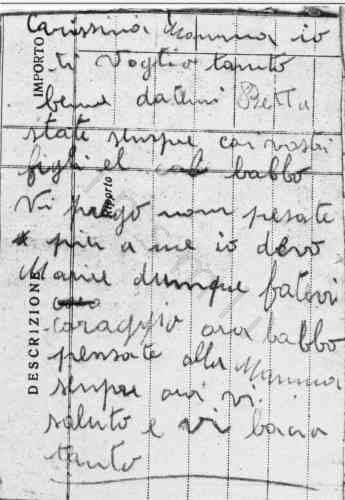 Carissima Mamma io
ti voglio tanto
bene datemi Retta
state sempre coi vostri
figli el col babbo
Vi prego non pesate
più a me io devo
Morire dunque fatevi
coraggio ora babbo
pensate alla Mamma
sempre ora vi
saluto e vi bacia
tanto
IMPORTO
Riporto
DESCRIZIONE